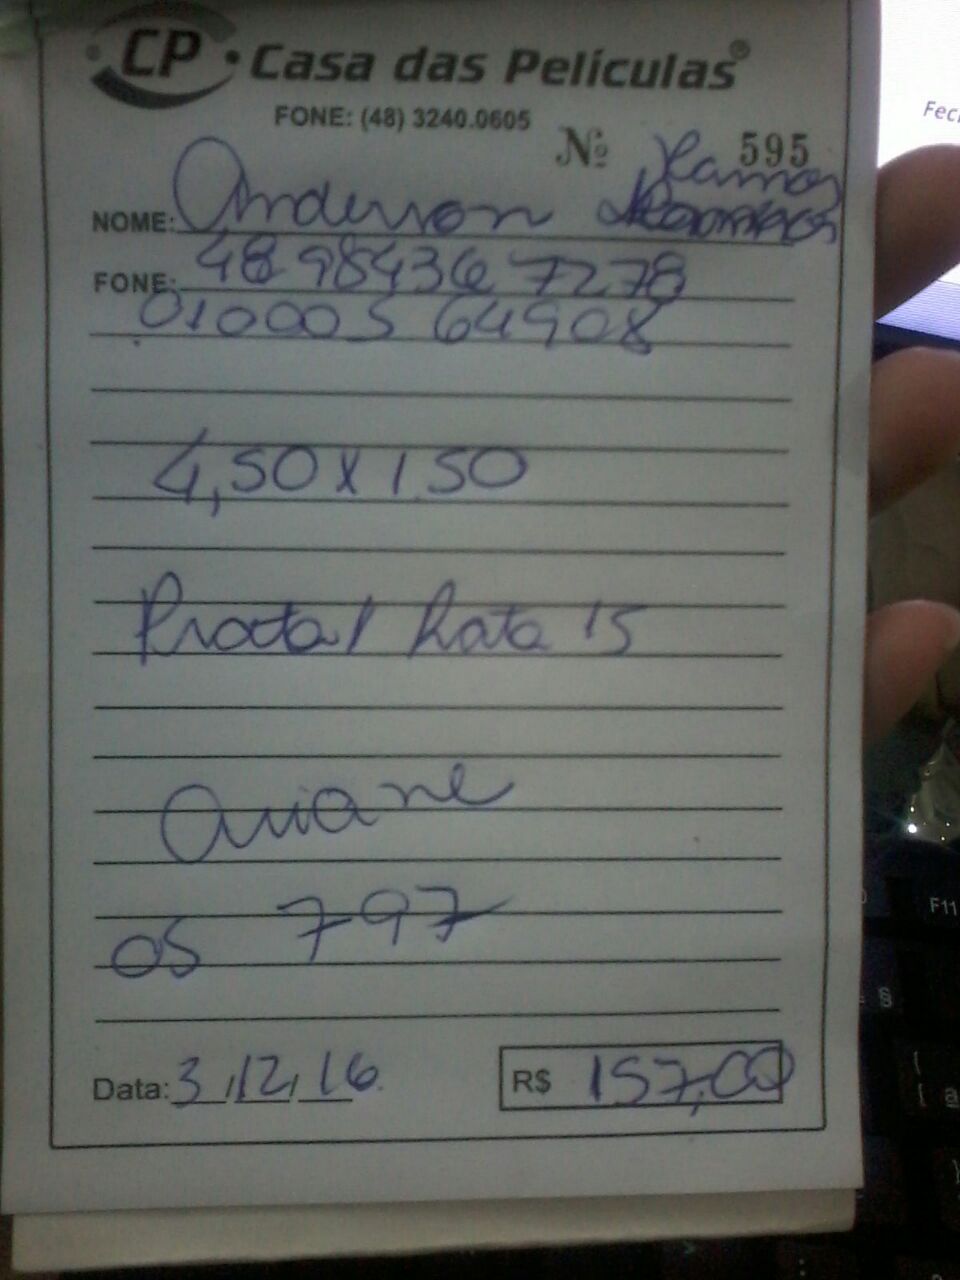 CP • Casa das Películas®
FONE: (48) 3240.0605
Nº 595
Ramos
NOME: Anderson
FONE: 48 98436 7278
010005 64908
4,50 x 1.50
Prata / Prata 15
Ariane
OS 797
Data: 3/12/16 R$ 157,00
Fech
F11
§